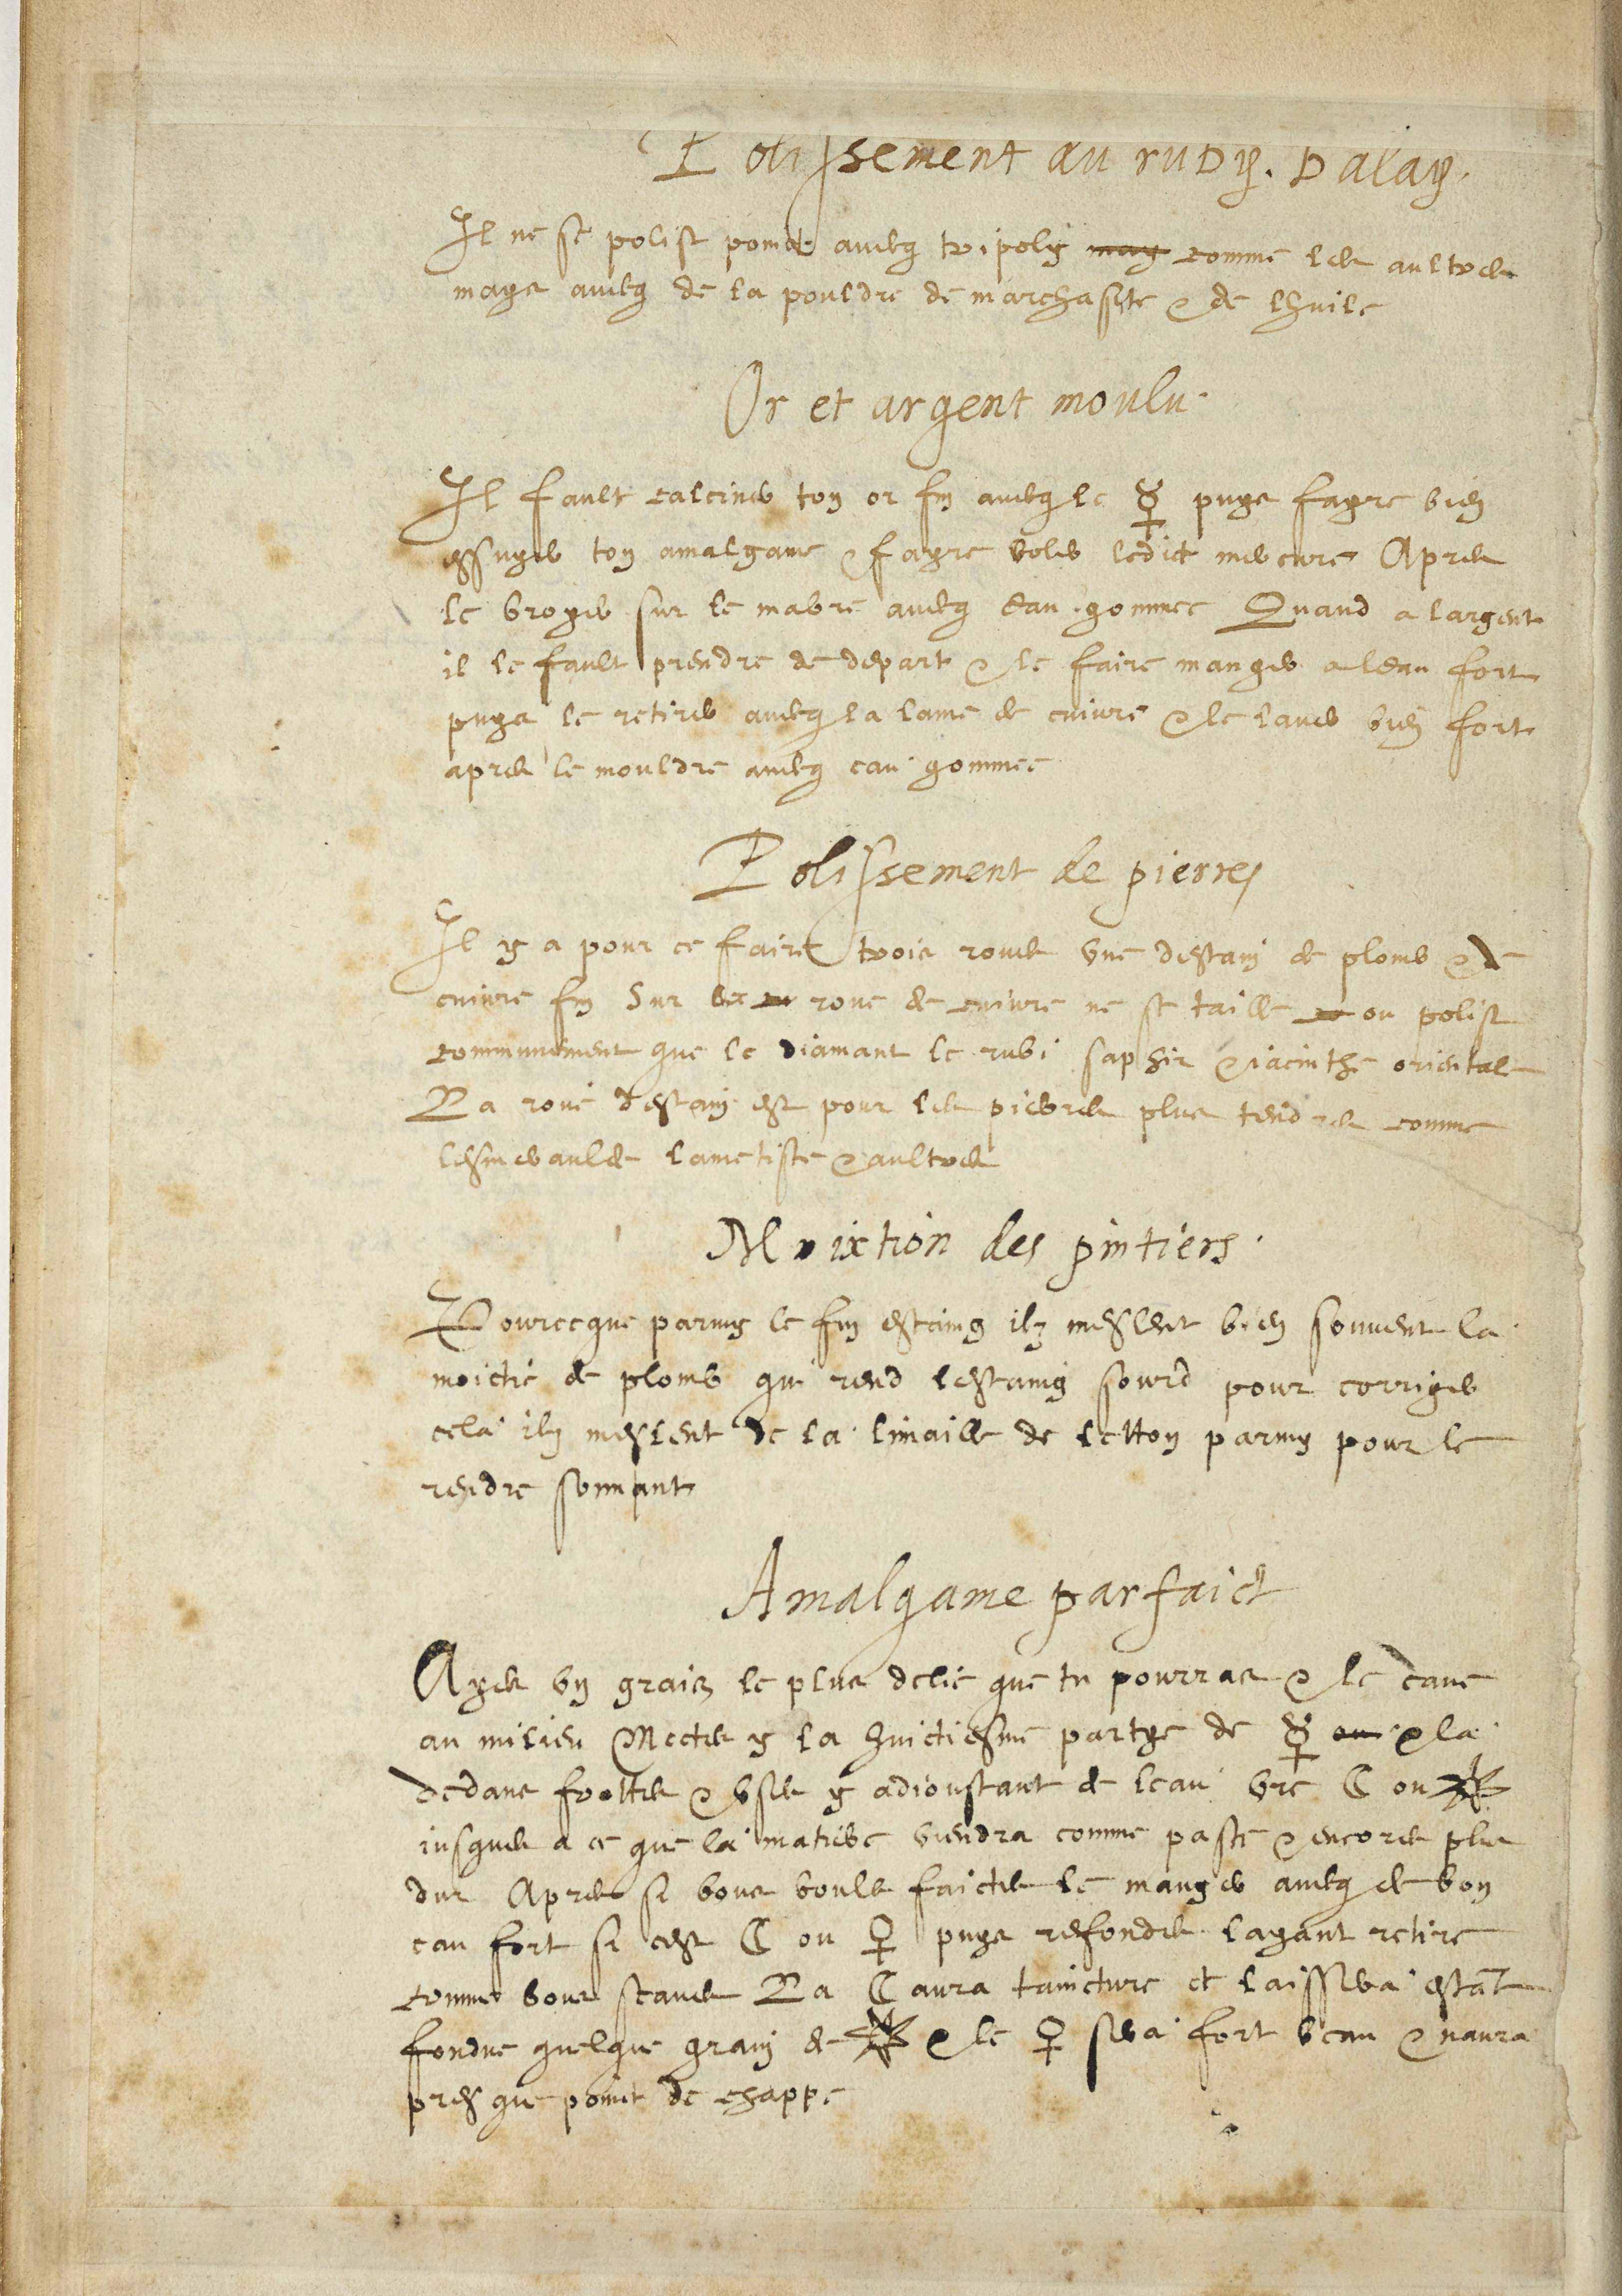 Polissement du ruby. balay.
Il ne se polist poinct avecq tripoly may comme les aultres
mays avecq de la pouldre de marchasite & de lhuile
Or et argent moulu.
Il fault calciner ton or fin avecq le ☿ puys fayre bien
essuyer ton amalgame & fayre voler ledict mercure Apres
le broyer sur le mabre avecq eau gommee Quand a largent
il le fault prendre de depart & le faire manger a leau fort
puys le retirer avecq la lame de cuivre & le laver bien fort
apres le mouldre avecq eau gommee
Polissement de pierres
Il y a pour ce faire trois roues une destain de plomb & de
cuivre fin Sur roue de cuivre ne se taille ou polist
communement que le diamant le rubi saphir & iacinthe oriental
La roue destain est pour les pierres plus tendres comme
lesmeraulde lametiste & aultres
Mixtion des pintiers.
Pourceque parmy le fin estaing ilz meslent bien souvent la
moictie de plomb qui rend lestaing sourd pour corriger
cela ilz meslent de la limaille de letton parmy pour le
rendre sonnant
Amalgame parfaict
Ayes un grais le plus delie que tu pourras & le cave
au milieu Mectes y la huictiesme partye de ☿ ou & la
dedans frottes & uses y adioustant de leau vre ☾ ou
iusques a ce que la matiere viendra comme paste & encores plus
dur Apres si vous voules faictes le manger avecq de bon
eau fort si cest ☾ ou ♀ puys refondes layant retire
comme vous scaves La ☾ aura taincture et laissera estant
fondue quelque grain de & le ♀ sera fort beau & naura
presque poinct de chappe